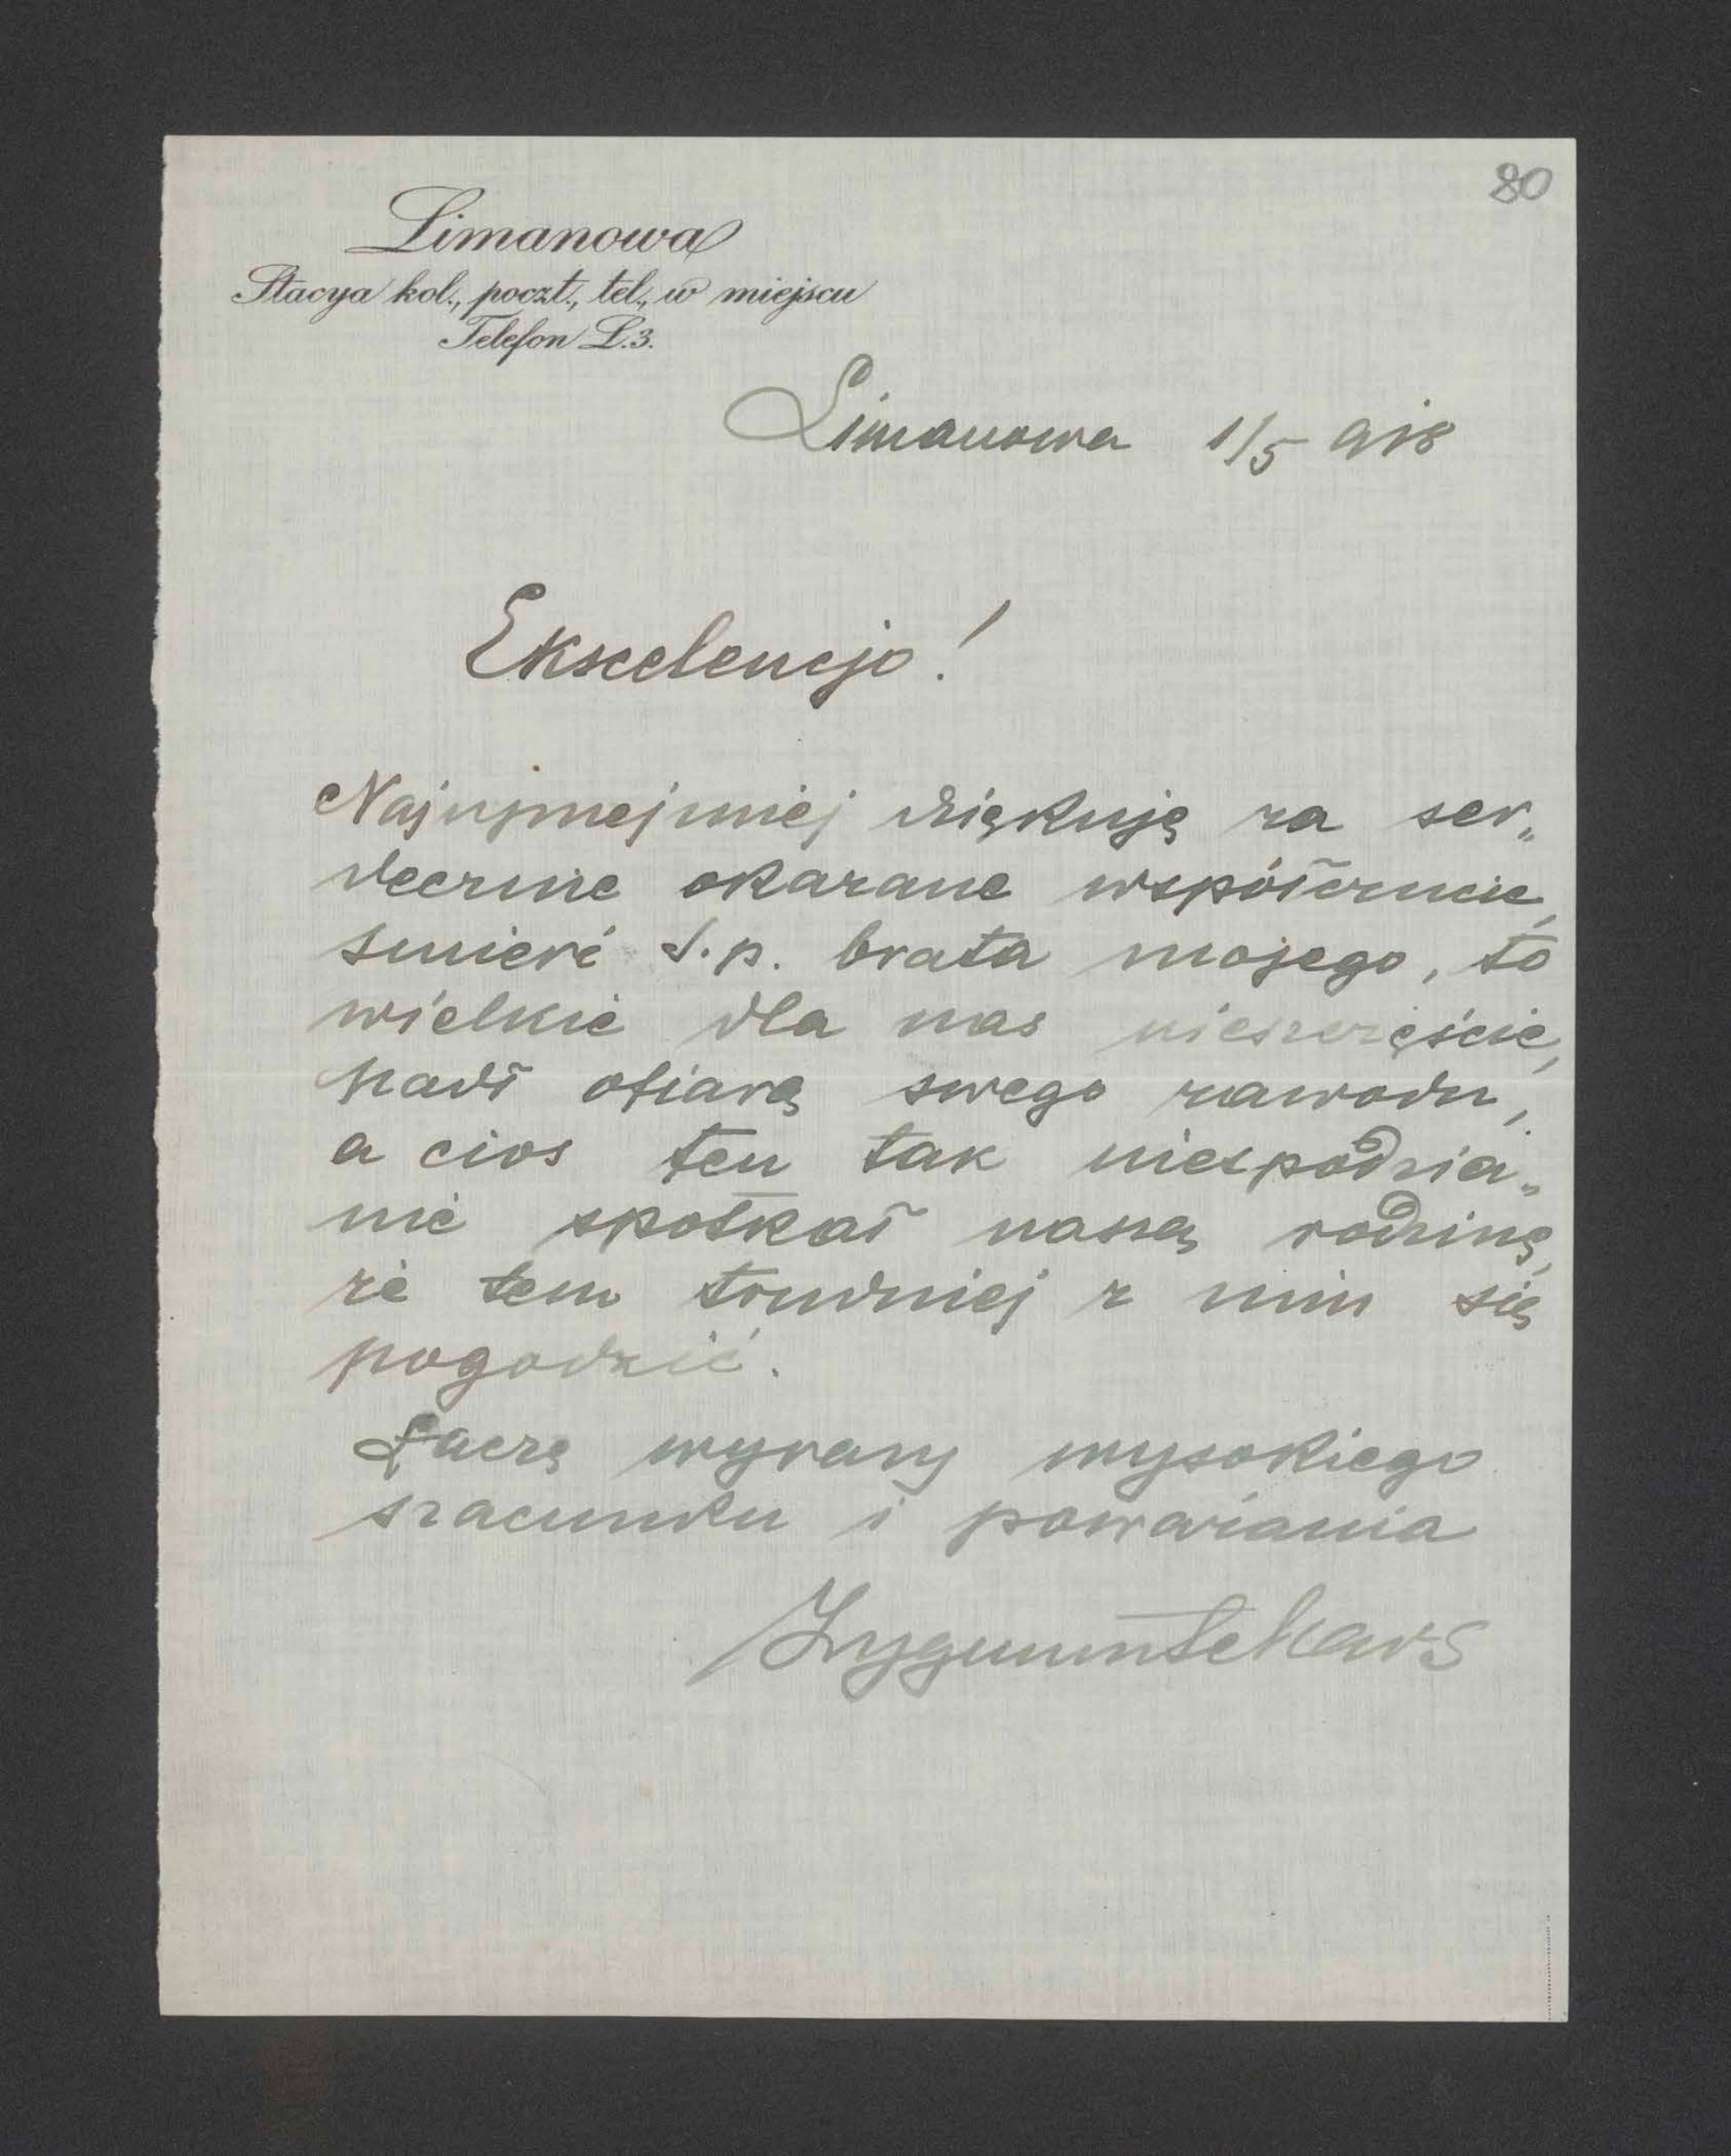 80
Limanowa
Stacya kol., poczt., tel., w miejscu
Telefon L.3.
Limanowa 1/5 918
Ekscelencjo!
Najuprzejmiej dziękuję za ser„
decznie okazane współczucie,
śmierć ś.p. brata mojego, to
wielkie dla nas nieszczęście,
padł ofiarą swego zawodu,
a cios ten tak niespodzia„
nie spotkał naszą rodzinę,
że tem trudniej z nim się
pogodzić.
Łączę wyrazy wysokiego
szacunku i poważania
Zygmunt